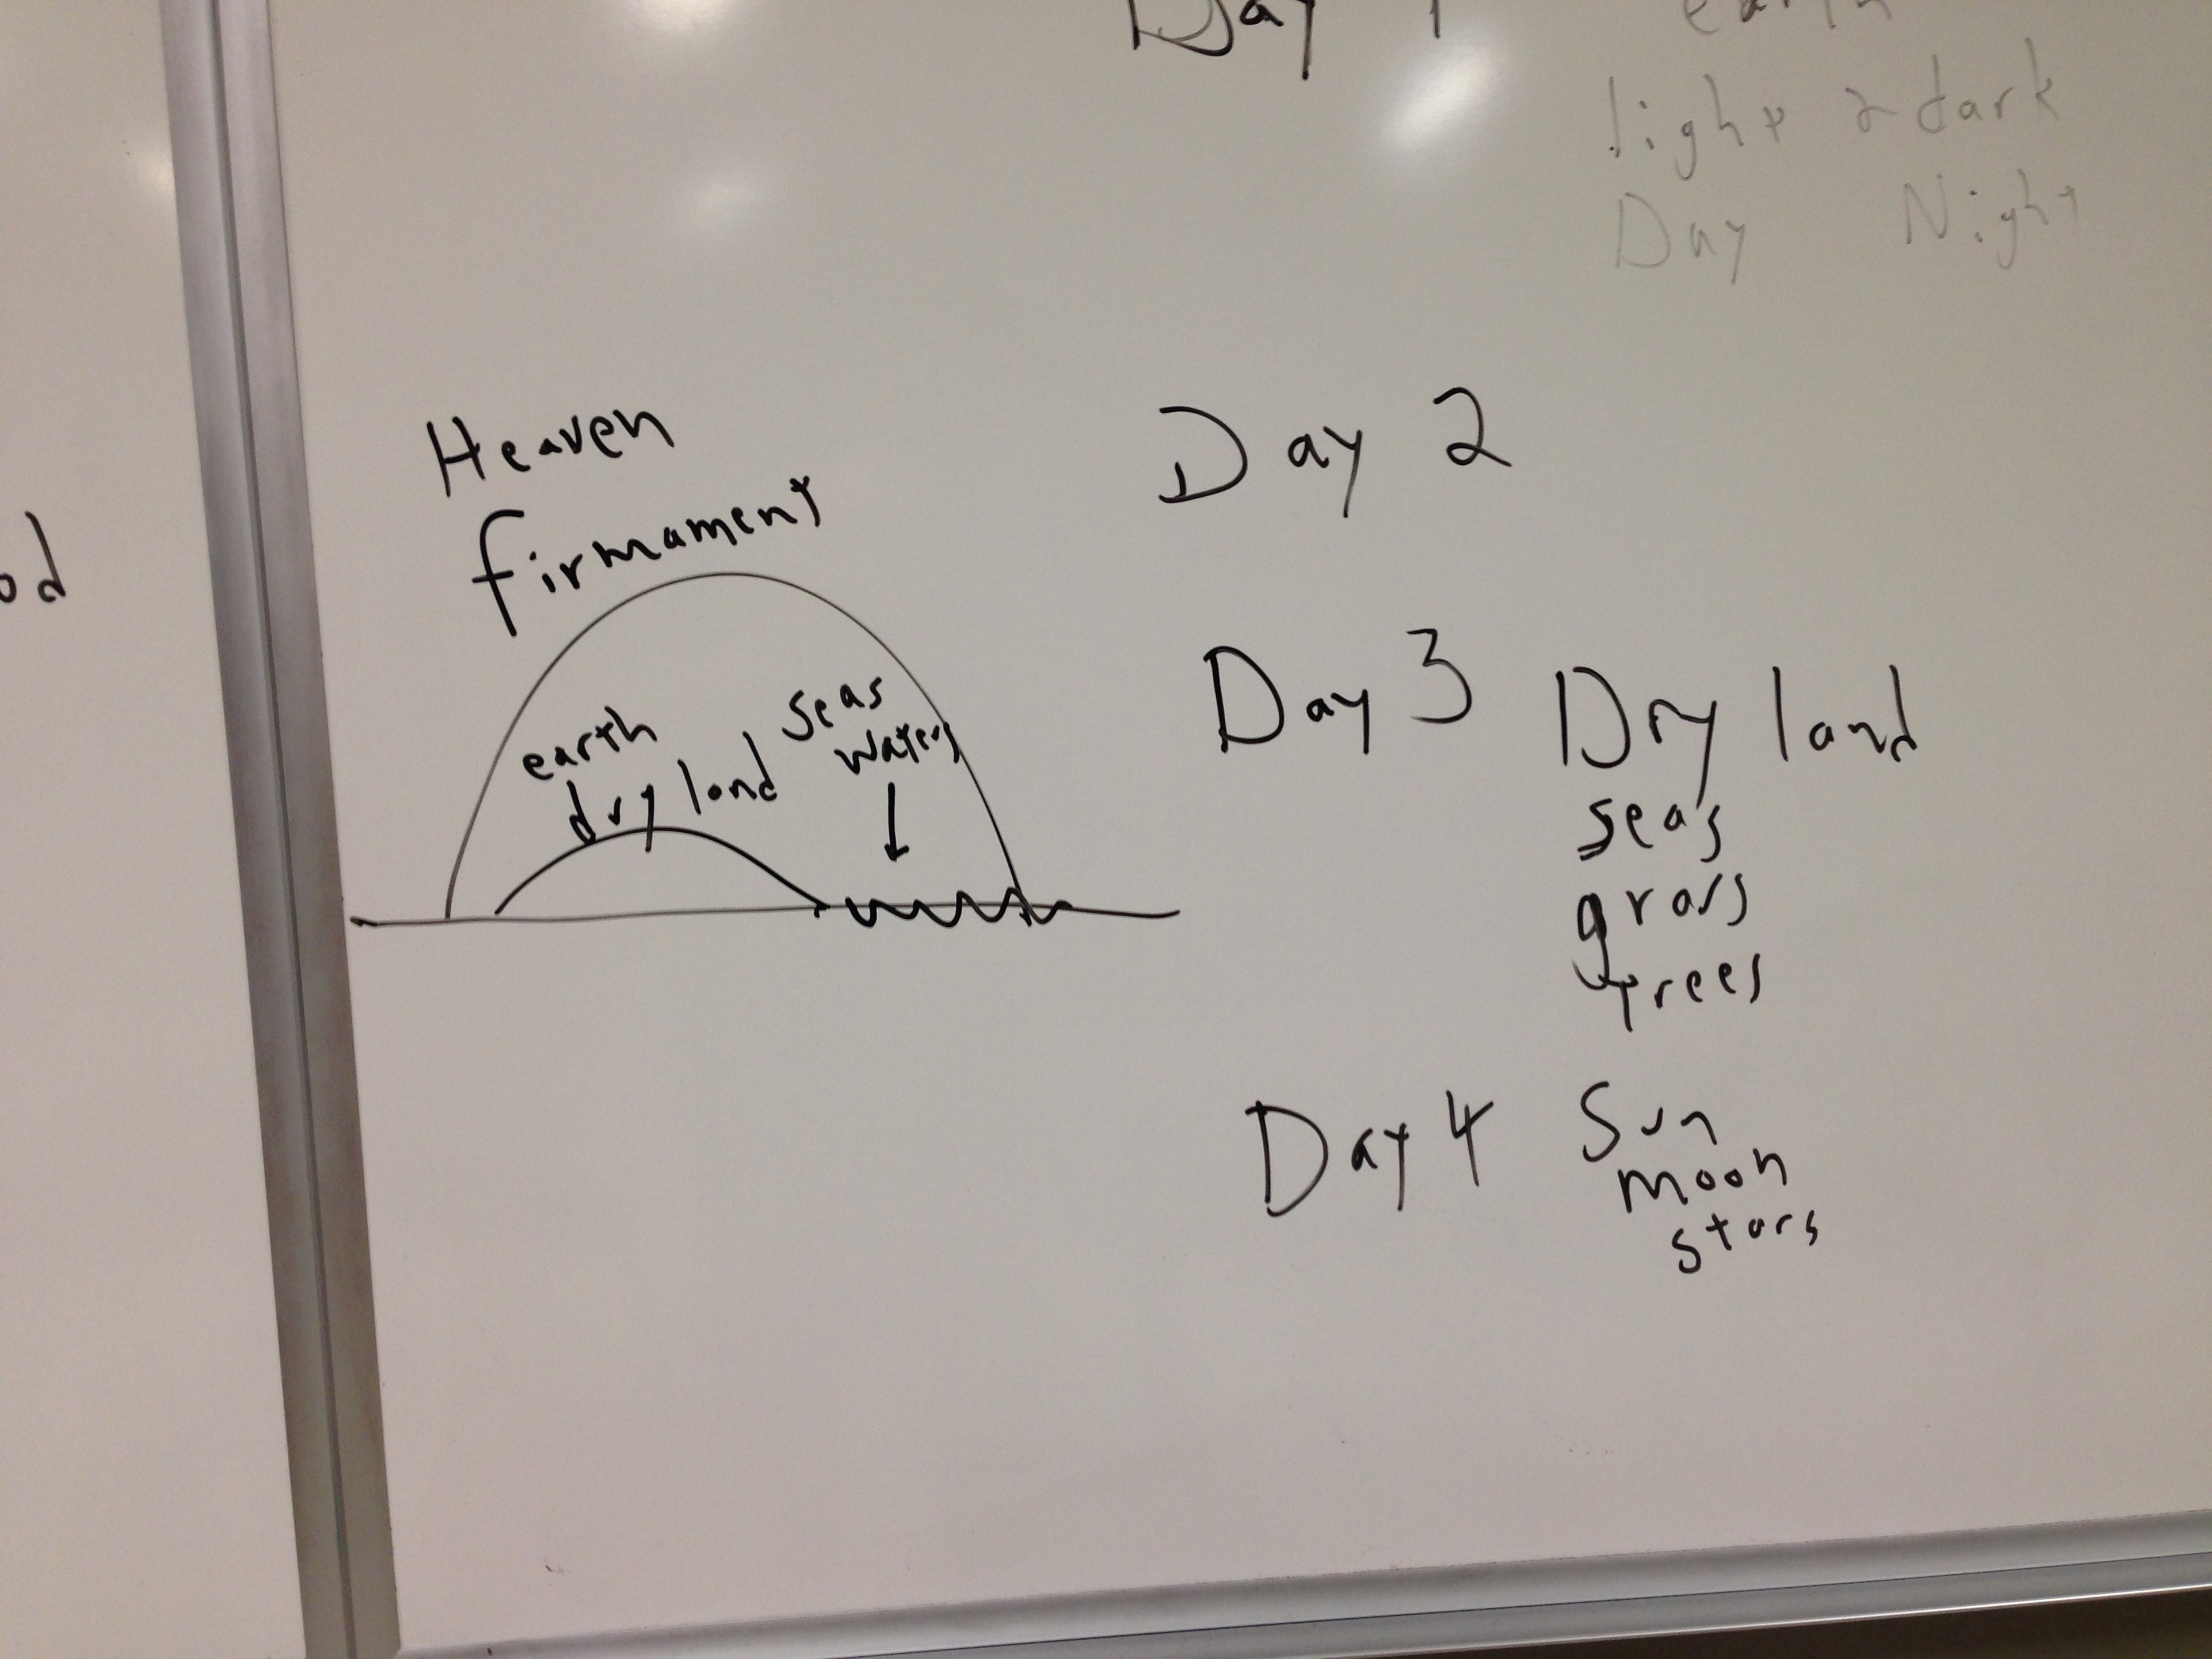 Day 1 earth
light & dark
Day Night
od
Heaven
firmament
earth
dry land
seas
waters
Day 2
Day 3 Dry land
seas
grass
trees
Day 4 Sun
moon
stars